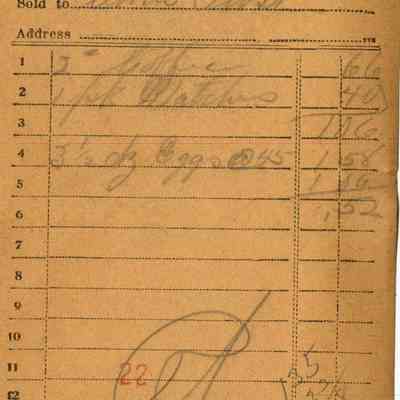 Sold to
Address
1 2 # Coffee 66
2 1 pk Matches 40
3 1 06
4 3 1/2 dz Eggs @ 45 1.58
5 1 06
6 .52
7
8
9
10
11 22
12